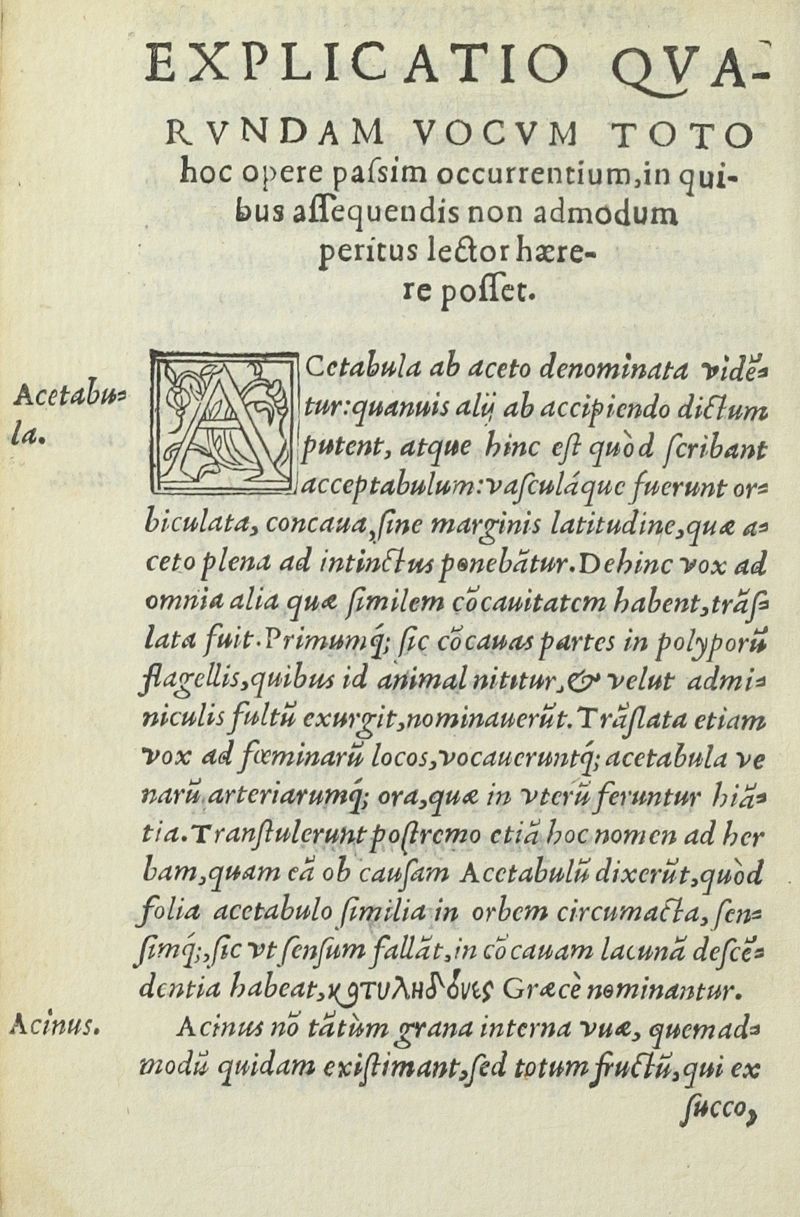 EXPLICATIO QVA-
RVNDAM VOCVM TOTO
hoc opere paſsim occurrentium,in qui-
bus aſſequendis non admodum
peritus lector hære-
re poſſet.
Acetabu-
la.
ACetabula ab aceto denominata vidẽ-
tur:quanuis alij ab accipiendo dictum
putent, atque hinc eſt quòd ſcribant
acceptabulum:vaſculáque fuerunt or-
biculata, concaua,ſine marginis latitudine,quæ a-
ceto plena ad intinctus ponebãtur.Dehinc vox ad
omnia alia quæ ſimilem cõcauitatem habent,trãſ-
lata fuit.Primumq́; ſic cõcauas partes in polyporũ
flagellis,quibus id animal nititur,& velut admi-
niculis fultũ exurgit,nominauerũt.Trãſlata etiam
vox ad fœminarũ locos,vocaueruntq́; acetabula ve
narũ arteriarumq́; ora,quæ in vterũ feruntur hiã-
tia.Tranſtulerunt poſtremo etiã hoc nomen ad her
bam,quam eã ob cauſam Acetabulũ dixerũt,quòd
folia acetabulo ſimilia in orbem circumacta, ſen-
ſimq́;,ſic vt ſenſum fallãt,in cõcauam lacunã deſcẽ-
dentia habeat,κοτυληδόνες Græcè nominantur.
Acinus.
Acinus nõ tãtùm grana interna vuæ, quemad-
modũ quidam exiſtimant,ſed totum fructũ,qui ex
ſucco,